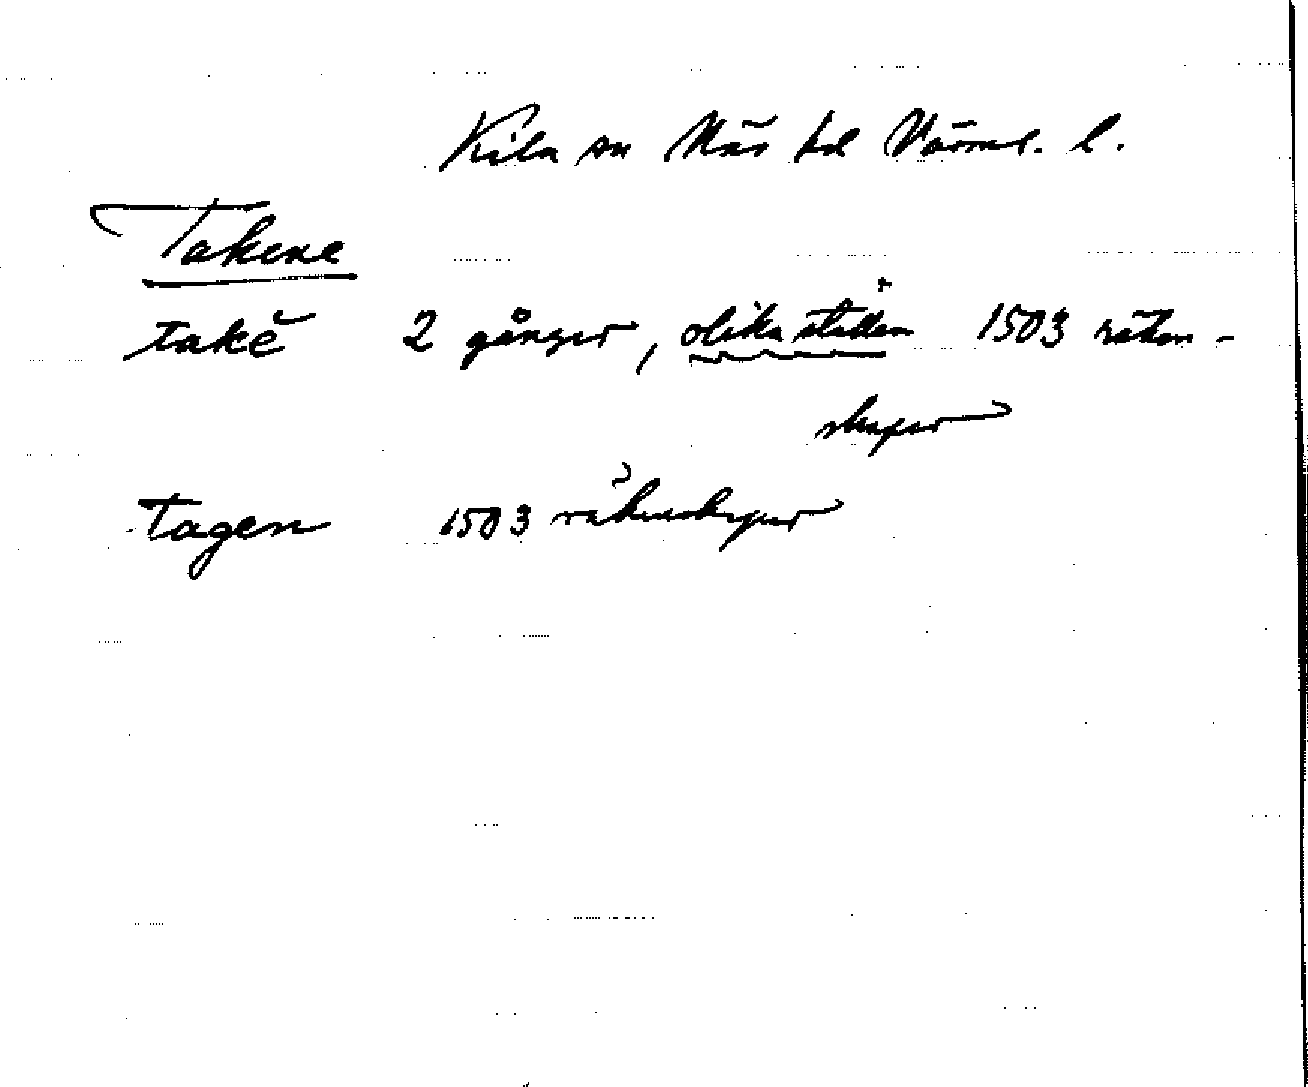 Kila sn Näs hd Värml. l.
Takene
takĕ 2 gånger, olika ställen 1503 räken-
skaper
tagen 1503 räkenskaper